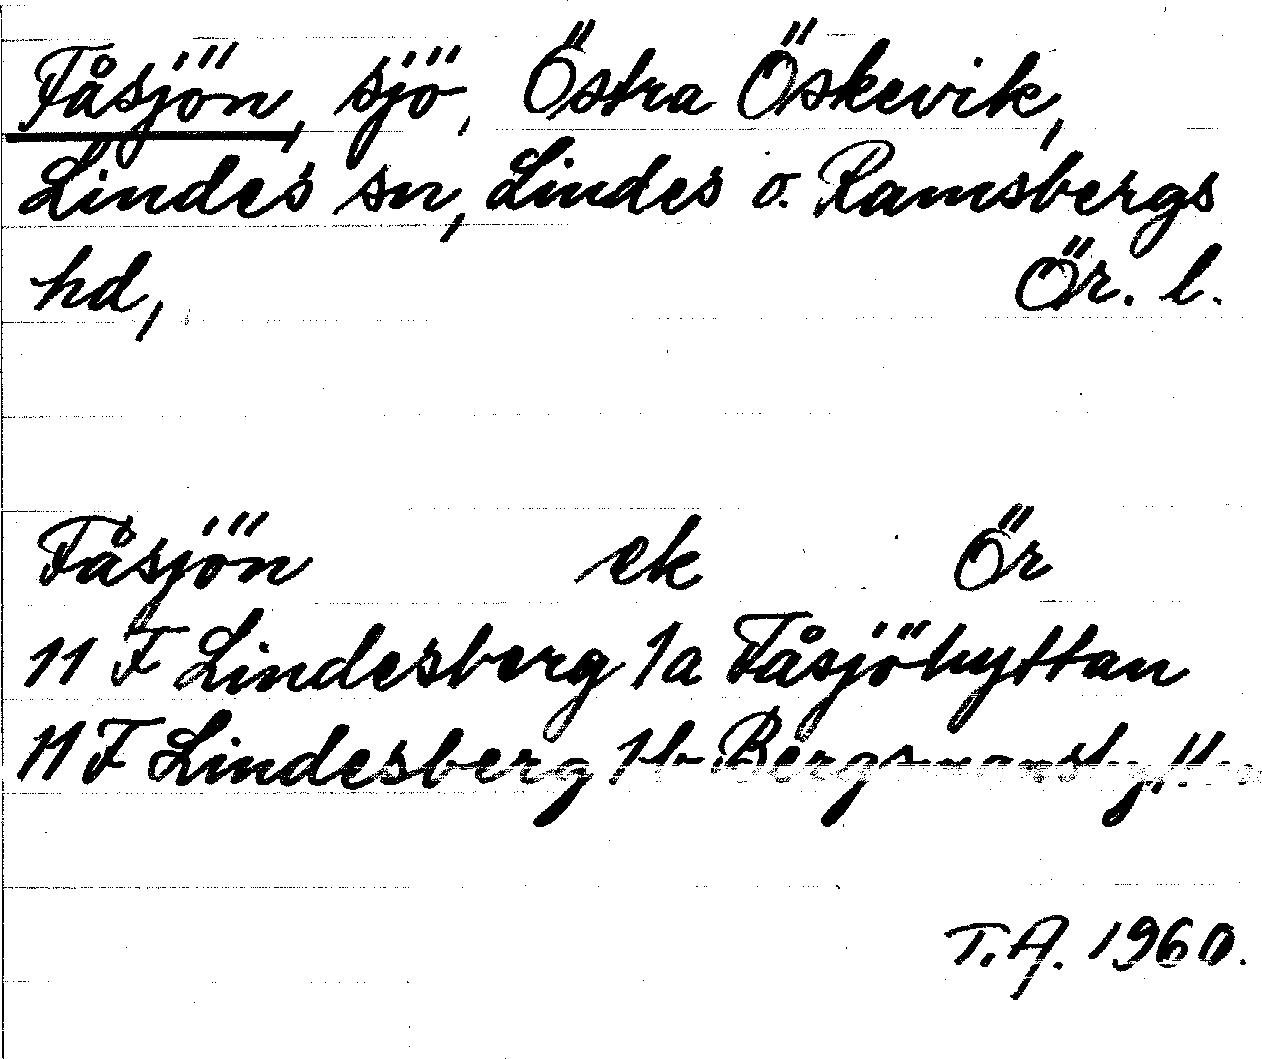 Fåsjön, sjö, Östra Öskevik,
Lindes sn, Lindes o. Ramsbergs
hd, Ör. l.
Fåsjön ek Ör
11 F Lindesberg 1a Fåsjöhyttan
11 F Lindesberg 1b Bergsmanshyttan
T.A. 1960.